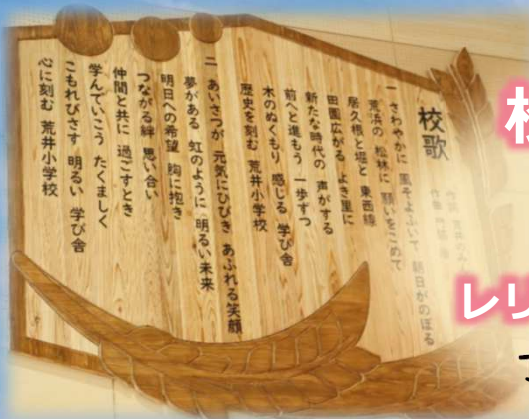 校歌
一 さわやかに 風そよふいて 朝日がのぼる
荒浜の 松林に 願いをこめて
居久根と堀と 東西線
田園広がる よき里に
新たな時代の 声がする
前へと進もう 一歩ずつ
木のぬくもり 感じる 学び舎
歴史を刻む 荒井小学校
二 あいさつが 元気にひびき あふれる笑顔
夢がある 虹のように 明るい未来
明日への希望 胸に抱き
つながる絆 思い合い
仲間と共に 過ごすとき
学んでいこう たくましく
こもれびさす 明るい 学び舎
心に刻む 荒井小学校
レリ